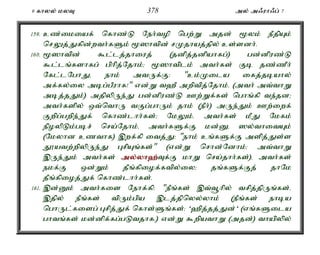 9 காலல் மலவு 378 அல் அஃராஃப் 7
159. உண்மையைக் கொண்டு நேர்வழி பெற்று அதன் மூலம் நீதியும் செலுத்துகின்றவர்களும் மூஸாவின் சமுதாயத்தில் உள்ளனர்.
160. மூஸாவின் கூட்டத்தாரைத் (தனித்தனியாகப்) பன்னிரண்டு
கூட்டங்களாகப் பிரித்தோம்; மூஸாவிடம் அவர்கள் குடி தண்ணீர்
கேட்டபோது, நாம் அவருக்கு: "உம்முடைய கைத்தடியால்
அக்கல்லை அடிப்பீராக!" என்று வஹீ அறிவித்தோம். (அவர் அவ்வாறு
அடித்ததும்) அதிலிருந்து பன்னிரண்டு ஊற்றுக்கள் பொங்கி வந்தன;
அவர்களில் ஒவ்வொரு வகுப்பாரும் தாம் (நீர்) அருந்தும் ஊற்றைக்
குறிப்பறிந்துக் கொண்டார்கள்; மேலும், அவர்கள் மீது மேகம்
நிழலிடும்படிச் செய்தோம், அவர்களுக்கு மன்னு, ஸல்வாவையும்
(மேலான உணவாக) இறக்கி வைத்து: "நாம் உங்களுக்கு அளித்துள்ள
தூயவற்றிலிருந்து புசியுங்கள்" (என்று சொன்னோம்; அவ்வாறு
இருந்தும் அவர்கள் அல்லாஹ்வுக்கு மாறு செய்தார்கள்), அவர்கள்
நமக்கு ஒன்றும் தீங்கிழைக்கவில்லை. தங்களுக்குத் தாமே
தீங்கிழைத்துக் கொண்டார்கள்.
161. இன்னும் அவர்களை நோக்கி: "நீங்கள் இவ்வூரில் வசித்திருங்கள்.
இதில் நீங்கள் விரும்பிய இடத்திலெல்லாம் (நீங்கள் நாடிய
பொருட்களைப்) புசித்துக் கொள்ளுங்கள்: 'ஹித்தத்துன்' (எங்களுடைய
பாவங்கள் மன்னிக்கப்படுவதாக.) என்று கூறியவாறு (அதன்) வாயிலில்